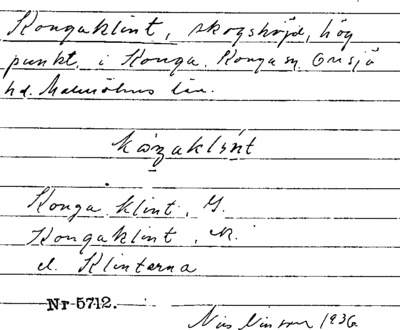 Kongaklint, skogshöjd, hög
punkt, i Konga. Konga sn. Onsjö
hd. Malmöhus län.
kåŋaklint
Konga klint, G.
Kongaklint, M.
el. Klinterna
Nr 5712.
Nils Nilsson 1936